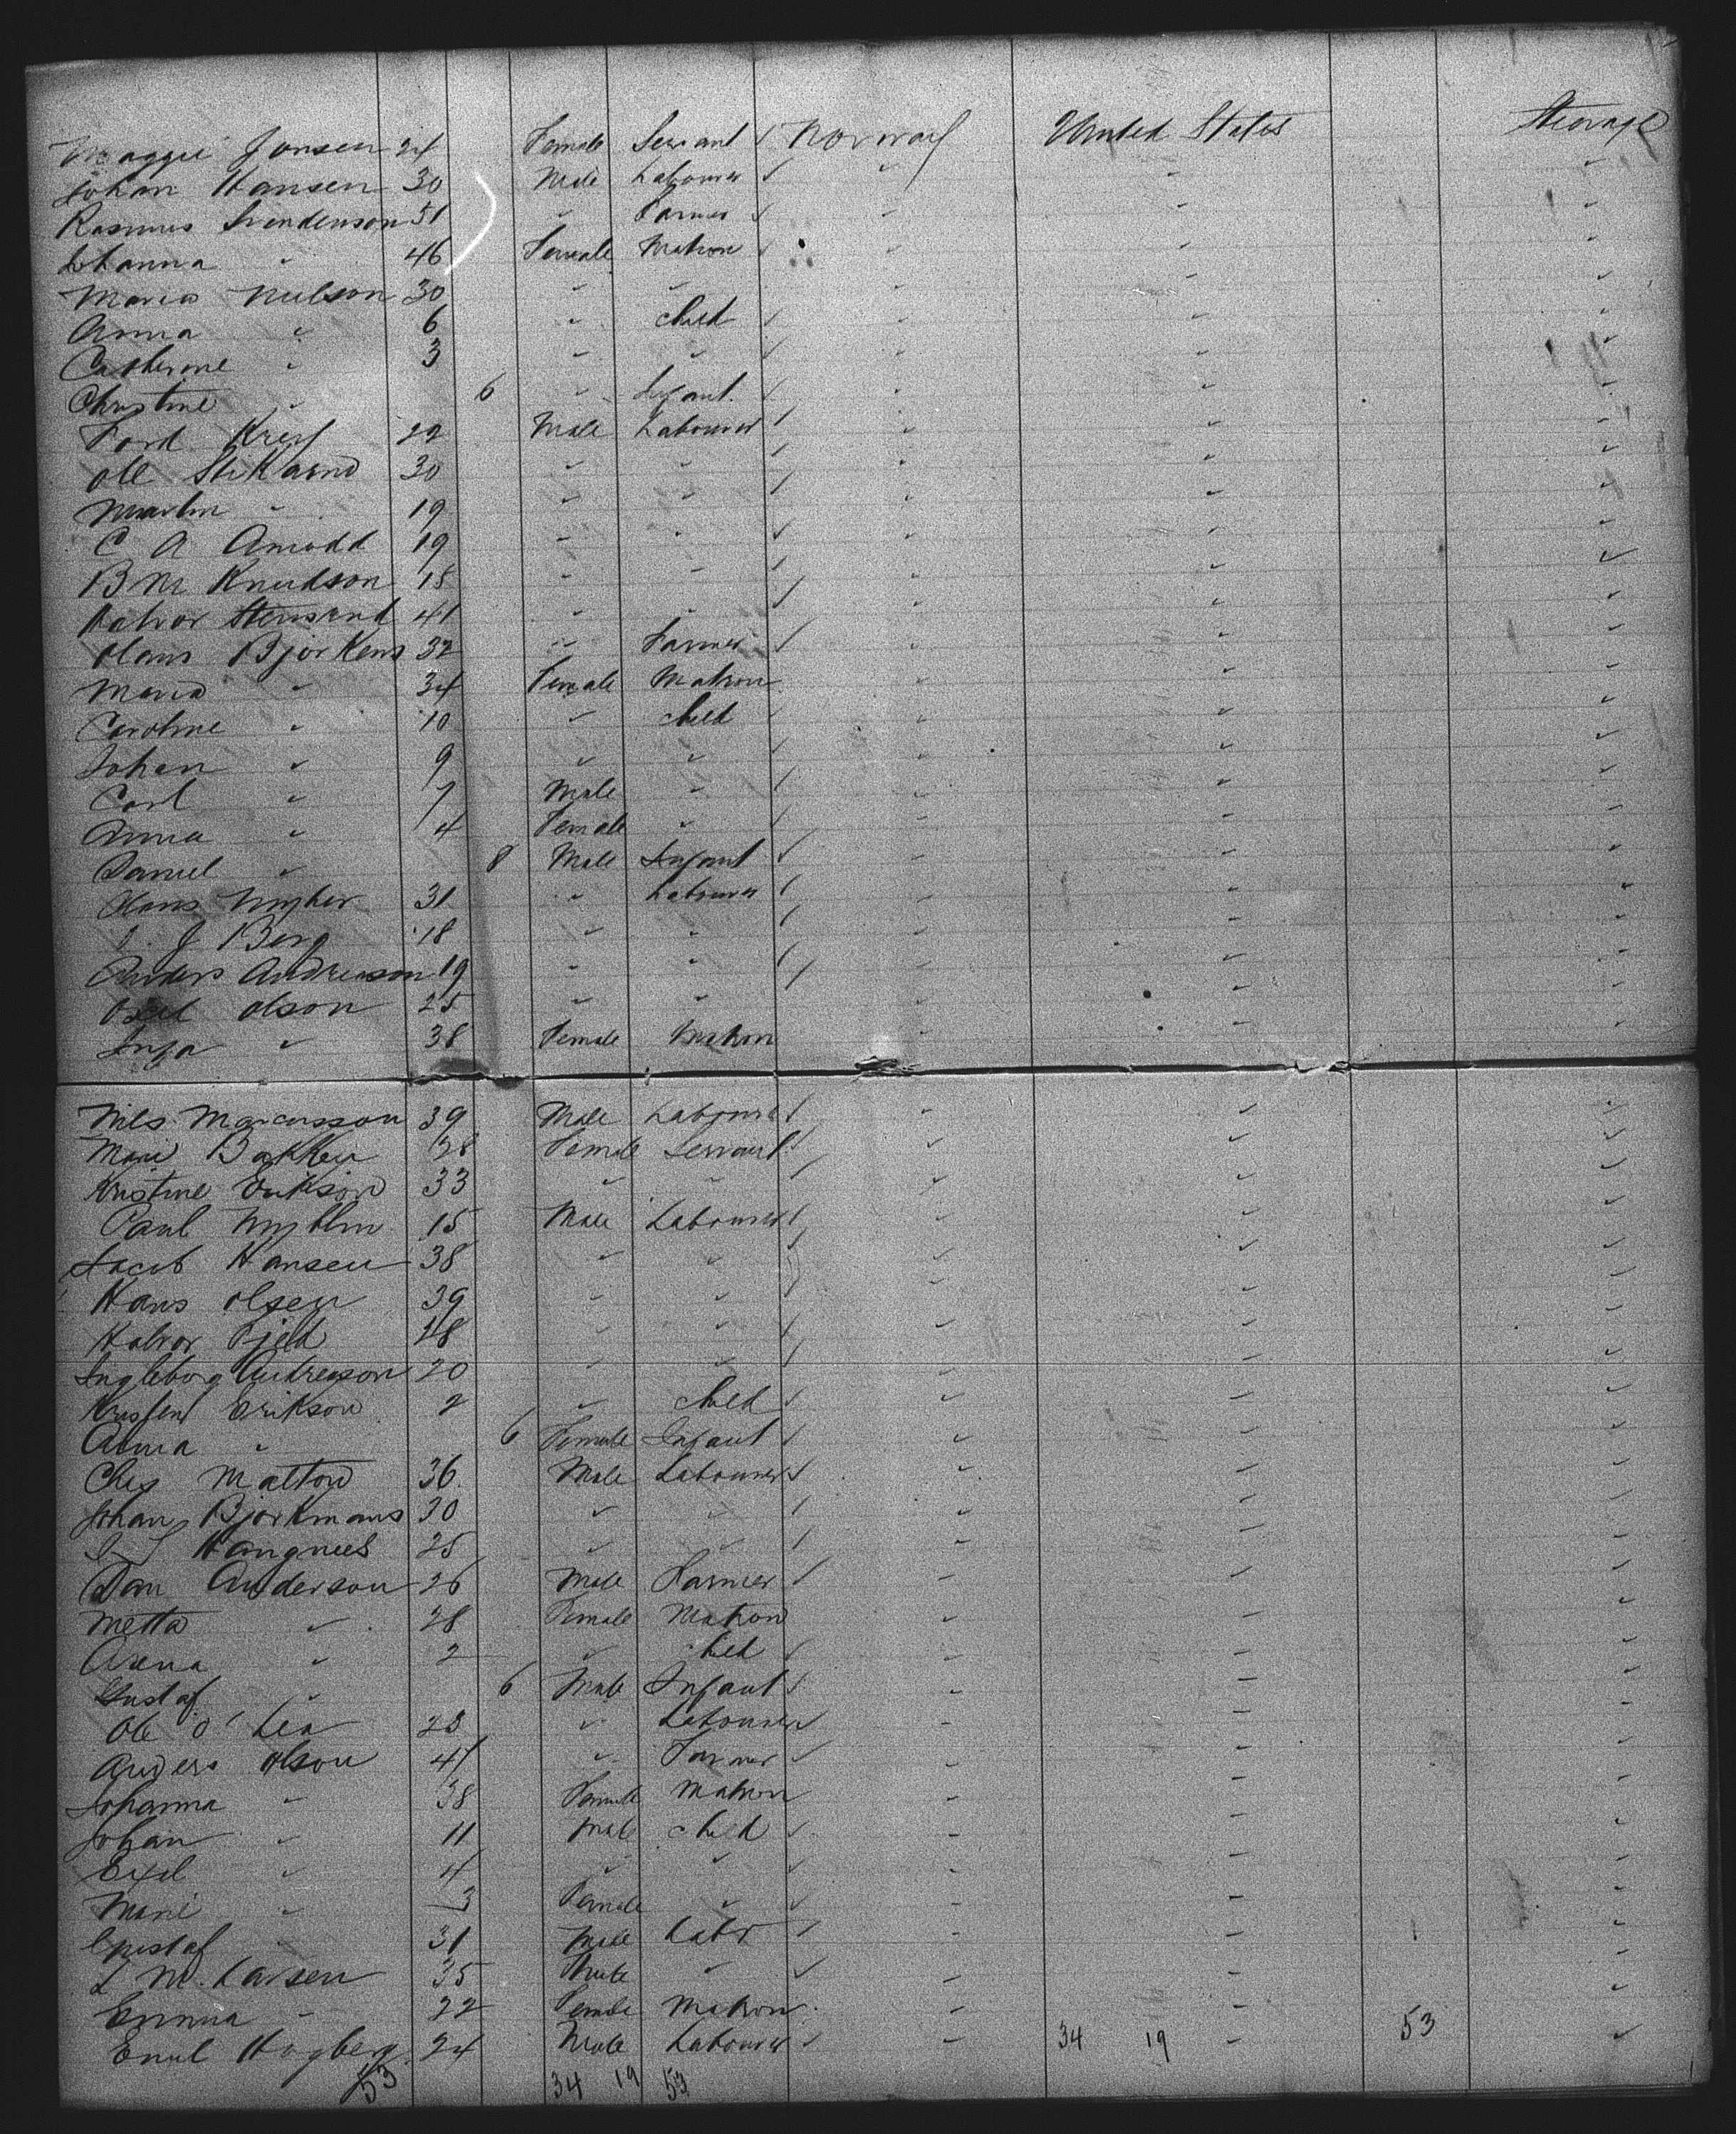 Maggie Jonsen 24 Female Servant Norway United States Steerage
Johan Hansen 30 Male Labourer " " "
Rasmus Svendenson 51 " Farmer " " "
Johanna " 46 Female Matron " " "
Maria Neilson 30 " " " " "
Anna " 6 " child " " "
Catherine " 3 " " " " "
Christine " 6 " Infant " " "
22 Male Labourer " " "
Ole 30 " " " " "
Martin " 19 " " " " "
C A Amodd 19 " " " " "
B M Knudson 18 " " " " "
Halvor 41 " " " " "
Hans Bjorkens 32 " Farmer " " "
Maria " 34 Female Matron " " "
Caroline " 10 " child " " "
Johan " 9 " " " " "
Carl " 7 Male " " " "
Anna " 4 Female " " " "
Daniel " 8 Male Infant " " "
Hans 31 " Labourer " " "
J Berg 18 " " " " "
Anders Andreason 19 " " " " "
Olson 25 " " " " "
Inga " 38 Female Matron " " "
Nils Marcusson 39 Male Labourer " " "
Marie Bakken 28 Female Servant " " "
Kristine Erikson 33 " " " " "
Paul 15 Male Labourer " " "
Jacob Hansen 38 " " " " "
Hans Olsen 39 " " " " "
Halvor 48 " " " " "
Ingleborg Andreason 20 " " " " "
Erikson 2 " child " " "
Anna " 6 Female Infant " " "
Chas Matton 36 Male Labourer " " "
Johan Bjorkmans 30 " " " "
25 " " " "
Dan Anderson 26 Male Farmer " "
Metta " 28 Female Matron " " "
Axena " 2 " child " " "
Gustaf " 6 Male Infant " " "
Ole O' Lea 23 " Labourer " " "
Anders Olson 41 " Farmer " "
Johanna " 38 Female Matron " " "
Johan " 11 Male child " " "
Exel " 4 " " " "
Marie " 3 Female " " " "
Gustaf " 31 Male Labr " " "
L M. Larsen 35 Male " " " "
Emma " 22 Female Matron " " "
Emil Hogberg 24 Male Labourer " 34 19 " 53 "
53 34 19 53